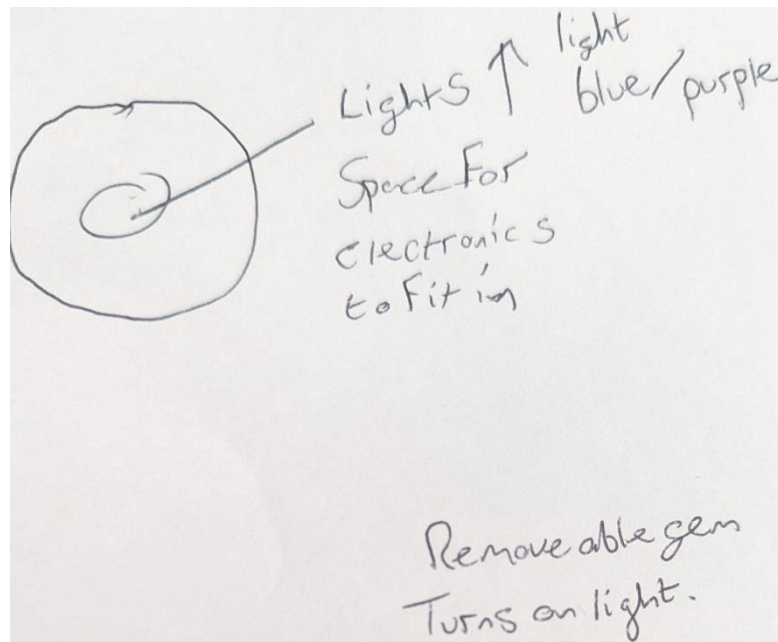 Lights ↑ light
blue/purple
Space For
electronics
to Fit in
Remove able gem
Turns on light.